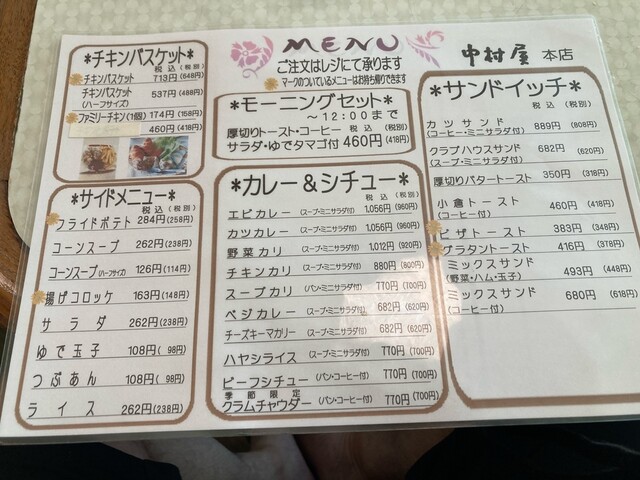 MENU
ご注文はレジにて承ります
マークのついているメニューはお持ち帰りできます
中村屋 本店
*チキンバスケット*
税込 (税別)
チキンバスケット 713円(648円)
チキンバスケット 537円(488円)
(ハーフサイズ)
ファミリーチキン(1個) 174円(158円)
460円(418円)
*サイドメニュー*
税込 (税別)
フライドポテト 284円(258円)
コーンスープ 262円(238円)
コーンスープ(ハーフサイズ) 126円(114円)
揚げコロッケ 163円(148円)
サラダ 262円(238円)
ゆで玉子 108円(98円)
つぶあん 108円(98円)
ライス 262円(238円)
*モーニングセット*
～12:00まで
厚切りトースト・コーヒー 税込 (税別)
サラダ・ゆでタマゴ付 460円(418円)
*カレー&シチュー*
税込 (税別)
エビカレー (スープ・ミニサラダ付) 1,056円(960円)
カツカレー (スープ・ミニサラダ付) 1,056円(960円)
野菜カリ (スープ・ミニサラダ付) 1,012円(920円)
チキンカリ (スープ・ミニサラダ付) 880円(800円)
スープカリ (パン・ミニサラダ付) 770円(700円)
ベジカレー (スープ・ミニサラダ付) 682円(620円)
チーズキーマカリー (スープ・ミニサラダ付) 682円(620円)
ハヤシライス (スープ・ミニサラダ付) 770円(700円)
ビーフシチュー (パン・コーヒー付) 770円(700円)
季節限定
クラムチャウダー (パン・コーヒー付) 770円(700円)
*サンドイッチ*
税込 (税別)
カツサンド 889円(808円)
(コーヒー・ミニサラダ付)
クラブハウスサンド 682円(620円)
(スープ・ミニサラダ付)
厚切りバタートースト 350円(318円)
小倉トースト 460円(418円)
(コーヒー付)
ピザトースト 383円(348円)
グラタントースト 416円(378円)
ミックスサンド 493円(448円)
(野菜・ハム・玉子)
ミックスサンド 680円(618円)
(コーヒー付)